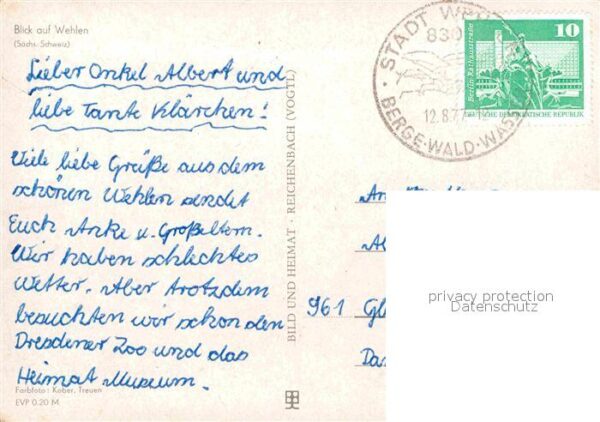 Blick auf Wehlen
(Sächs. Schweiz)
Lieber Onkel Albert und
liebe Tante Klärchen!
Viele liebe Grüße aus dem
schönen Wehlen sendet
Euch Anke u. Großeltern.
Wir haben schlechtes
Wetter. Aber trotzdem
besuchten wir schon den
Dresdener Zoo und das
Heimat Museum.
Farbfoto: Kober, Treuen
EVP 0.20 M
BILD UND HEIMAT · REICHENBACH (VOGTL)
STADT WEHLEN
830
12.8.7
BERGE·WALD·WASSER
10
Berlin, Rathausstraße
DEUTSCHE DEMOKRATISCHE REPUBLIK
961 Gl
privacy protection
Datenschutz